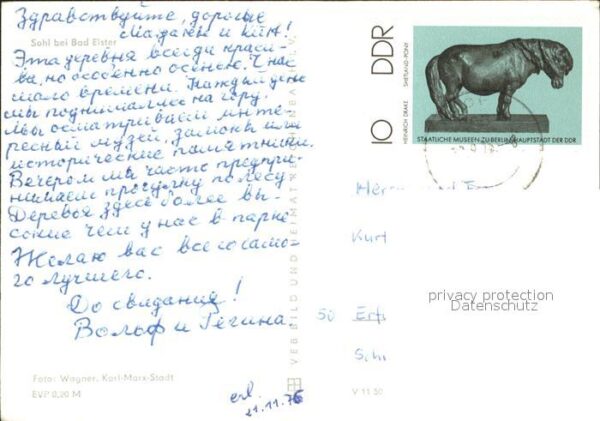 Здравствуйте, дорогие
Мадлен и Кин!
Sohl bei Bad Elster
Эта деревня всегда краси-
ва, но особенно осенью. У нас
мало времени. Каждый день
мы поднимались на гору.
Мы осматриваем инте-
ресный музей, замоки или
исторические памятники.
Вечером мы часто предпри-
нимаем прогулку по лесу.
Деревья здесь более вы-
сокие чем у нас в парке.
Желаю вас все самог
го лучшего.
До свидания!
Вольф и Регина.
Foto: Wagner, Karl-Marx-Stadt
EVP 0,20 M
erl.
21.11.76
VEB BILD UND HEIMAT
V 11 50
DDR
10
HEINRICH DRAKE
SHETLAND-PONY
STAATLICHE MUSEEN ZU BERLIN HAUPTSTADT DER DDR
Kurt
50 Erf
privacy protection
Datenschutz